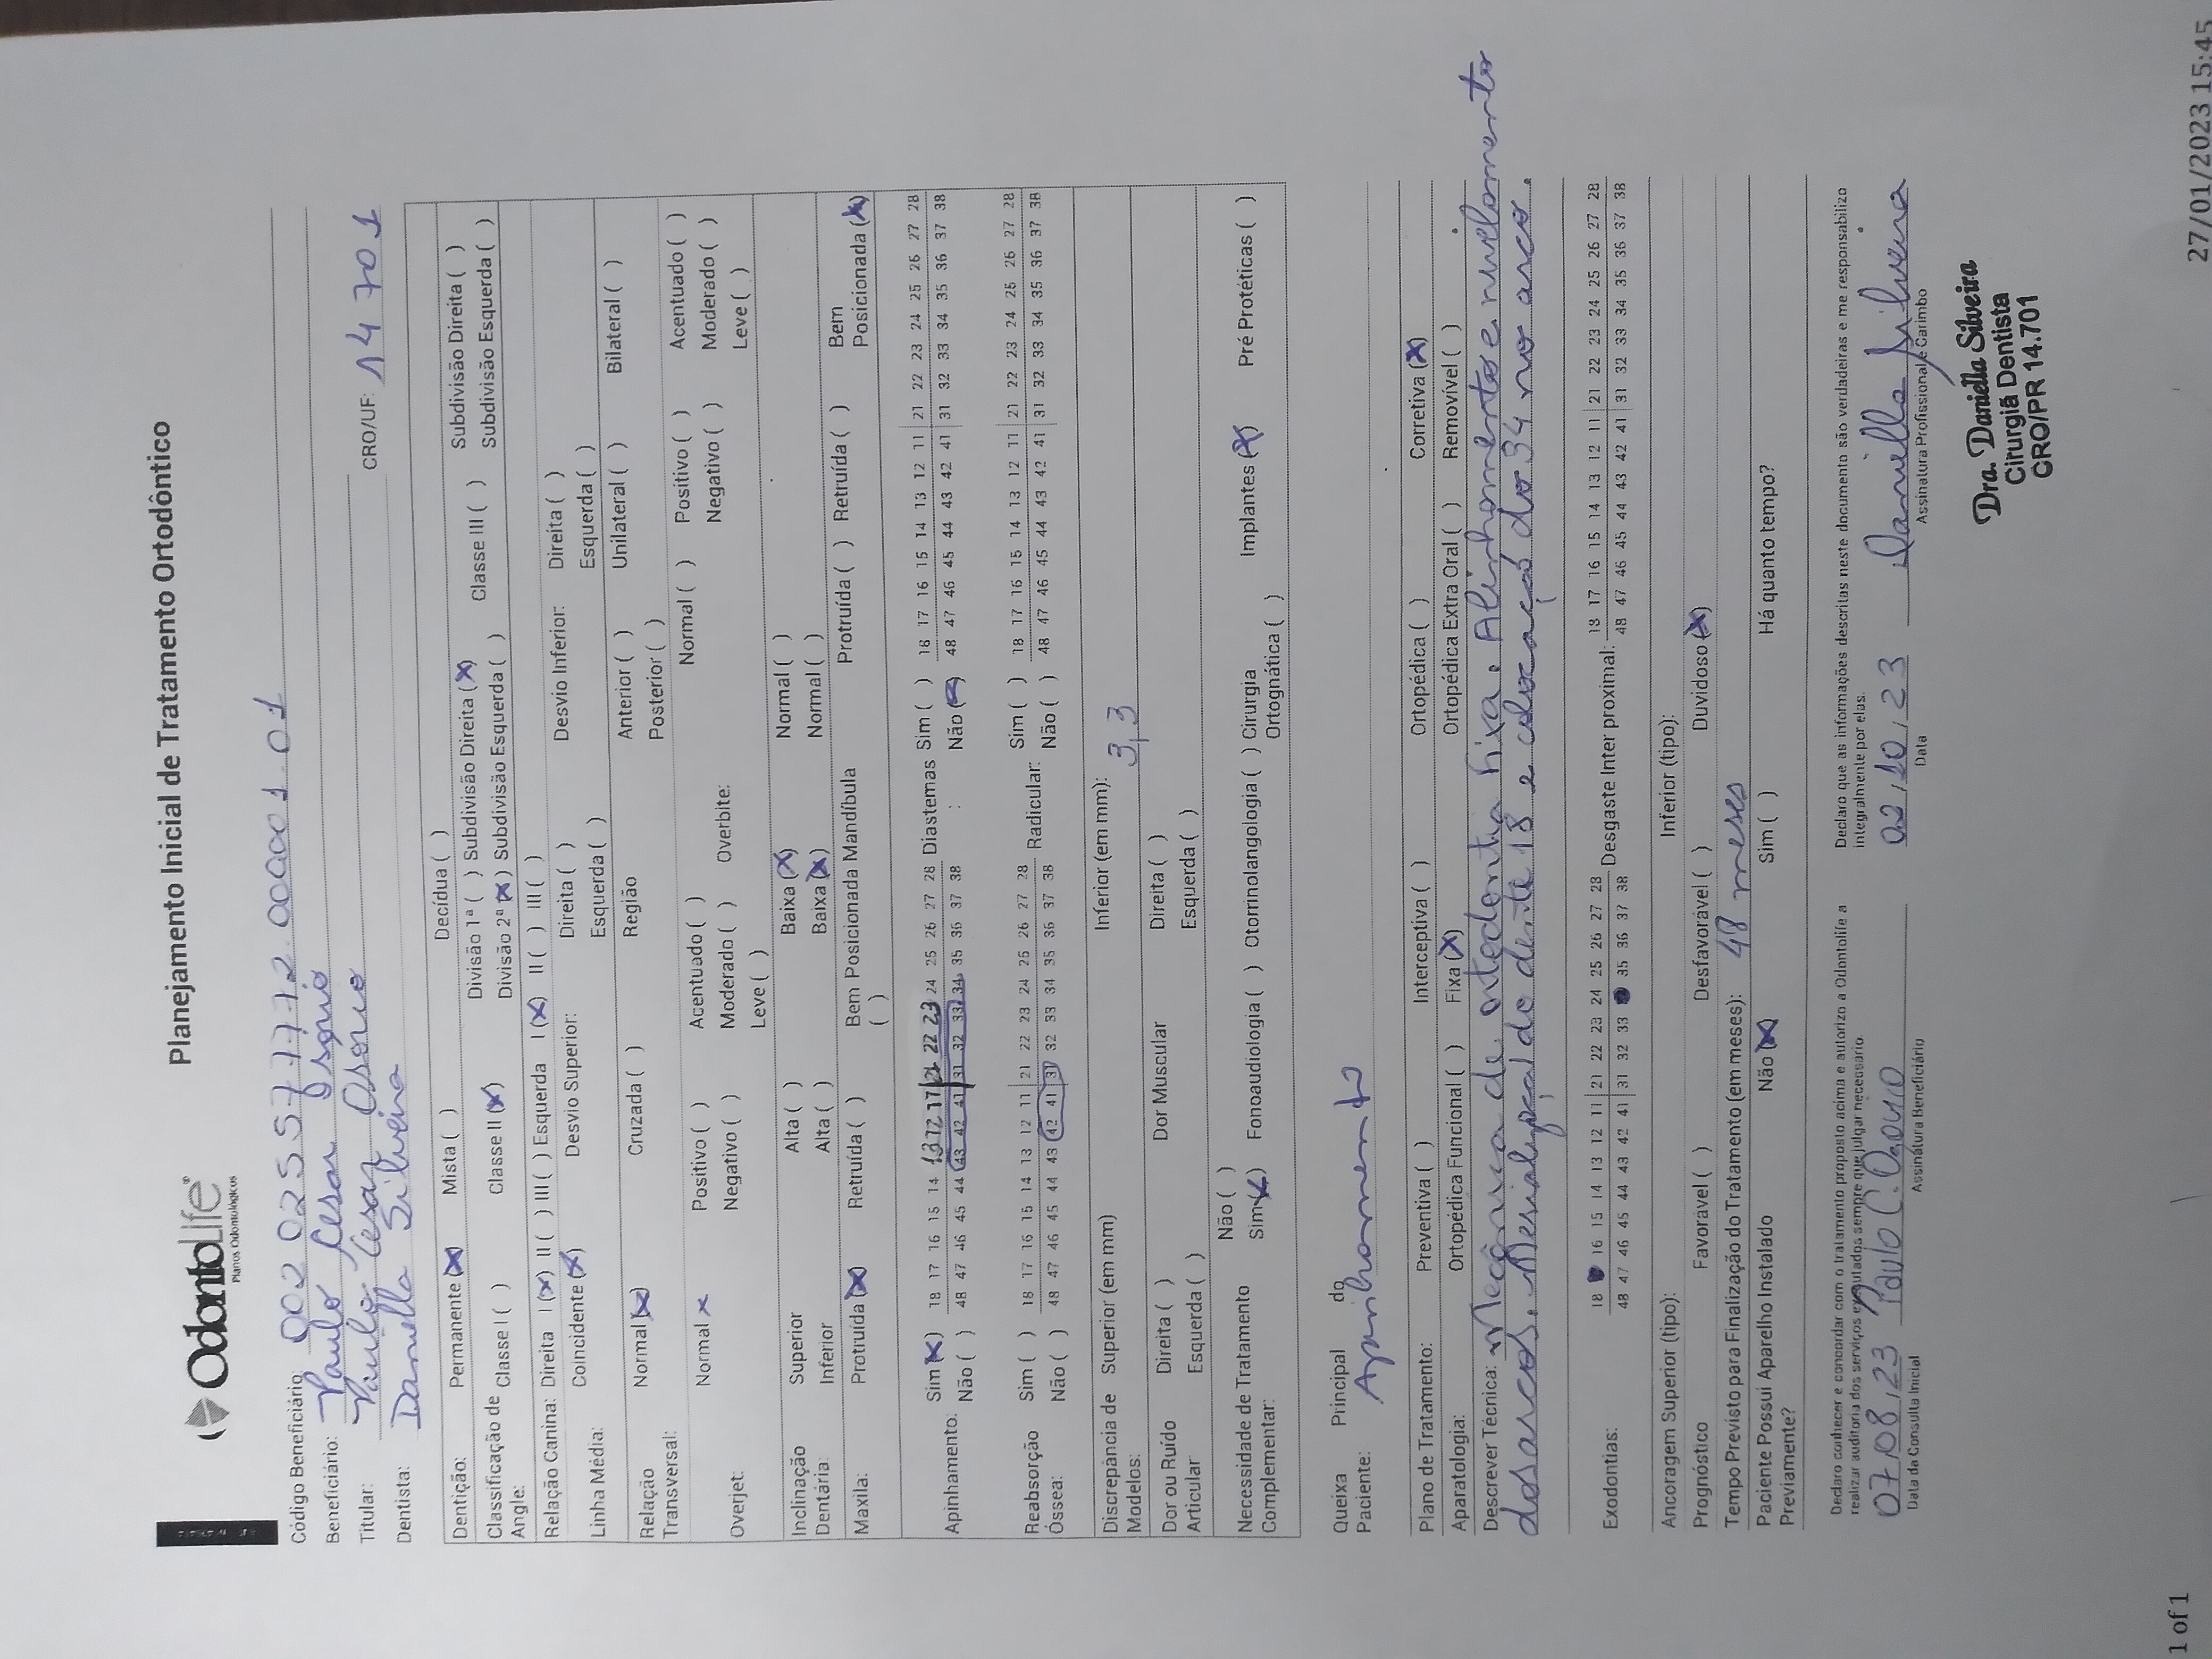 OdontoLife®
Planos Odontológicos
Planejamento Inicial de Tratamento Ortodôntico
Código Beneficiário 002 025 57772 000001.01
Beneficiário: Paulo Cesar Osório
Titular: Paulo Cesar Osorio
Dentista: Daniella Silveira CRO/UF: 14 701
Dentição: Permanente (X) Mista ( ) Decídua ( )
Classificação de Angle: Classe I ( ) Classe II (X) Divisão 1ª ( ) Subdivisão Direita (X) Classe III ( ) Subdivisão Direita ( )
Divisão 2ª (X) Subdivisão Esquerda ( ) Subdivisão Esquerda ( )
Relação Canina: Direita I (X) II ( ) III ( ) Esquerda I (X) II ( ) III ( )
Linha Média: Coincidente (X) Desvio Superior: Direita ( ) Desvio Inferior: Direita ( )
Esquerda ( ) Esquerda ( )
Relação Transversal: Normal (X) Cruzada ( ) Região Anterior ( ) Unilateral ( ) Bilateral ( )
Posterior ( )
Overjet: Normal x Positivo ( ) Acentuado ( ) Overbite: Normal ( ) Positivo ( ) Acentuado ( )
Negativo ( ) Moderado ( ) Negativo ( ) Moderado ( )
Leve ( ) Leve ( )
Inclinação Dentária: Superior Alta ( ) Baixa (X) Normal ( )
Inferior Alta ( ) Baixa (X) Normal ( )
Maxila: Protruída (X) Retruída ( ) Bem Posicionada ( ) Mandíbula Protruída ( ) Retruída ( ) Bem Posicionada (X)
Apinhamento: Sim (X) 18 17 16 15 14 13 12 11 21 22 23 24 25 26 27 28 Diastemas : Sim ( ) 18 17 16 15 14 13 12 11 21 22 23 24 25 26 27 28
Não ( ) 48 47 46 45 44 43 42 41 31 32 33 34 35 36 37 38 Não (X) 48 47 46 45 44 43 42 41 31 32 33 34 35 36 37 38
Reabsorção Óssea: Sim ( ) 18 17 16 15 14 13 12 11 21 22 23 24 25 26 27 28 Radicular: Sim ( ) 18 17 16 15 14 13 12 11 21 22 23 24 25 26 27 28
Não ( ) 48 47 46 45 44 43 42 41 31 32 33 34 35 36 37 38 Não ( ) 48 47 46 45 44 43 42 41 31 32 33 34 35 36 37 38
Discrepância de Modelos: Superior (em mm) Inferior (em mm): 3,3
Dor ou Ruído Articular Direita ( ) Dor Muscular Direita ( )
Esquerda ( ) Esquerda ( )
Necessidade de Tratamento Complementar: Não ( )
Sim (X) Fonoaudiologia ( ) Otorrinolangologia ( ) Cirurgia Ortognática ( ) Implantes (X) Pré Protéticas ( )
Queixa Principal do Paciente: Apinhamento
Plano de Tratamento: Preventiva ( ) Interceptiva ( ) Ortopédica ( ) Corretiva (X)
Aparatologia: Ortopédica Funcional ( ) Fixa (X) Ortopédica Extra Oral ( ) Removível ( )
Descrever Técnica: Mecânica de ortodontia fixa. Alinhamento e nivelamento
dos arcos. Mesial do dente 18 e colocação do 34 no arco.
Exodontias: 18 16 15 14 13 12 11 21 22 23 24 25 26 27 28 Desgaste Inter proximal: 18 17 16 15 14 13 12 11 21 22 23 24 25 26 27 28
48 47 46 45 44 43 42 41 31 32 33 35 36 37 38 48 47 46 45 44 43 42 41 31 32 33 34 35 36 37 38
Ancoragem Superior (tipo): Inferior (tipo):
Prognóstico Favorável ( ) Desfavorável ( ) Duvidoso (X)
Tempo Previsto para Finalização do Tratamento (em meses): 48 meses
Paciente Possui Aparelho Instalado Previamente? Não (X) Sim ( ) Há quanto tempo?
Declaro conhecer e concordar com o tratamento proposto acima e autorizo a Odontolife a
realizar auditoria dos serviços executados sempre que julgar necessário.
Declaro que as informações descritas neste documento são verdadeiras e me responsabilizo
integralmente por elas.
07,08,23 Paulo C. Osorio 02,10,23 Daniella Silveira
Data da Consulta Inicial Assinatura Beneficiário Data Assinatura Profissional e Carimbo
Dra. Daniella Silveira
Cirurgiã Dentista
CRO/PR 14.701
1 of 1 27/01/2023 15:45